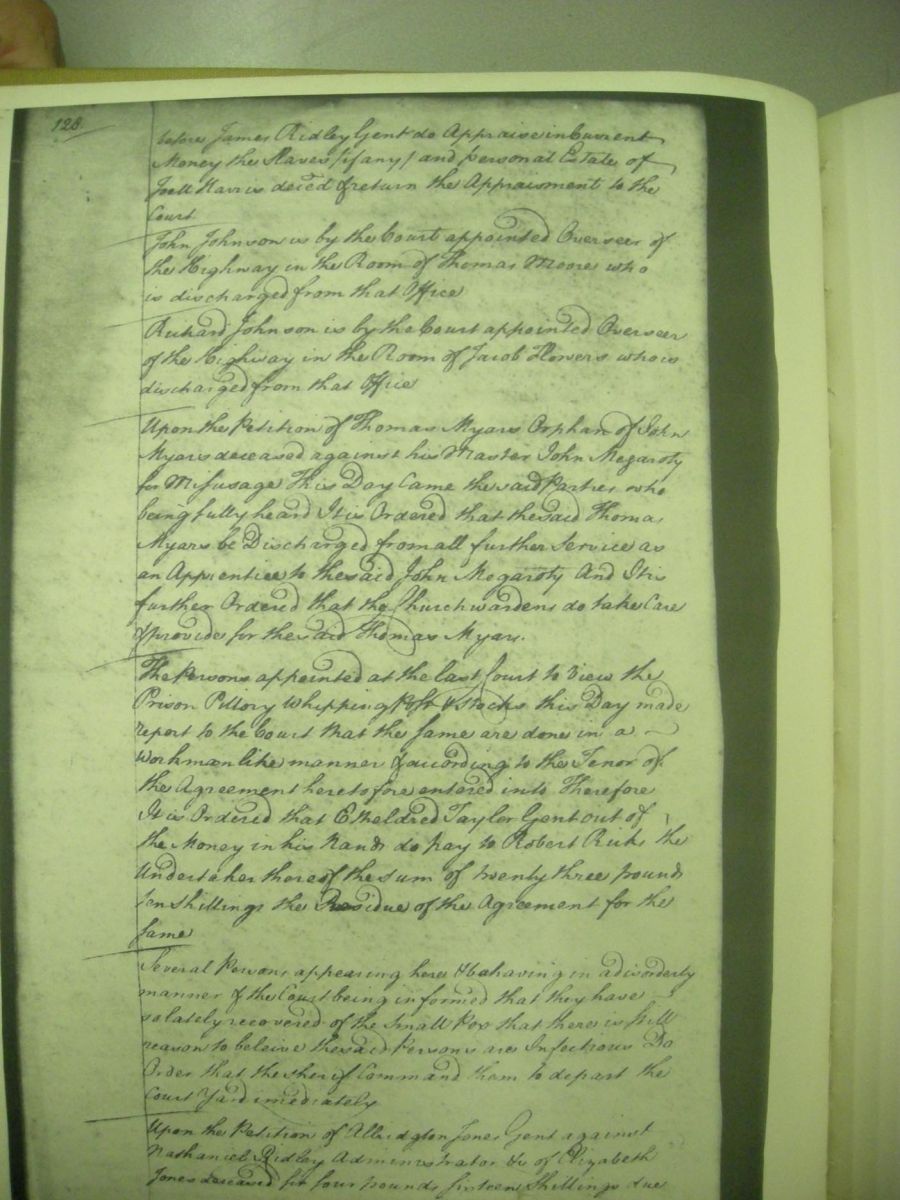 128
before James Ridley Gent do Appraise in Current
Money the Slaves (if any) and personal Estate of
Joell Harris deced & return the Appraisment to the
Court
John Johnson is by the Court appointed Overseer of
the Highway in the Room of Thomas Moore who
is discharged from that Office
Richard Johnson is by the Court appointed Overseer
of the Highway in the Room of Jacob Flowers who is
discharged from that Office
Upon the Petition of Thomas Myars Orphan of John
Myars deceased against his Master John Megaroty
for Misusage This Day Came the said Parties who
being fully heard It is Ordered that the said Thomas
Myars be Discharged from all further Service as
an Apprentice to the said John Megaroty And It is
further Ordered that the Church wardens do take Care
& provide for the said Thomas Myars.
The Persons appointed at the last Court to View the
Prison Pillory Whipping Post & Stocks this Day made
report to the Court that the same are done in a
workmanlike manner & according to the Tenor of
the Agreement heretofore entered into Therefore
It is Ordered that Etheldred Taylor Gent out of
the Money in his Hands do pay to Robert Ricks the
Undertaker thereof the sum of twenty three pounds
ten shillings the Residue of the Agreement for the
same
Several Persons appearing here & behaving in a disorderly
manner & the Court being informed that they have
so lately recovered of the Small Pox that there is still
reason to beleive the said Persons are Infectious Do
Order that the sherif Command them to depart the
Court Yard imediately
Upon the Petition of Allridgton Jones Gent against
Nathaniel Ridley Administrator &c of Elizabeth
Jones deceased for four pounds sixteen Shillings due